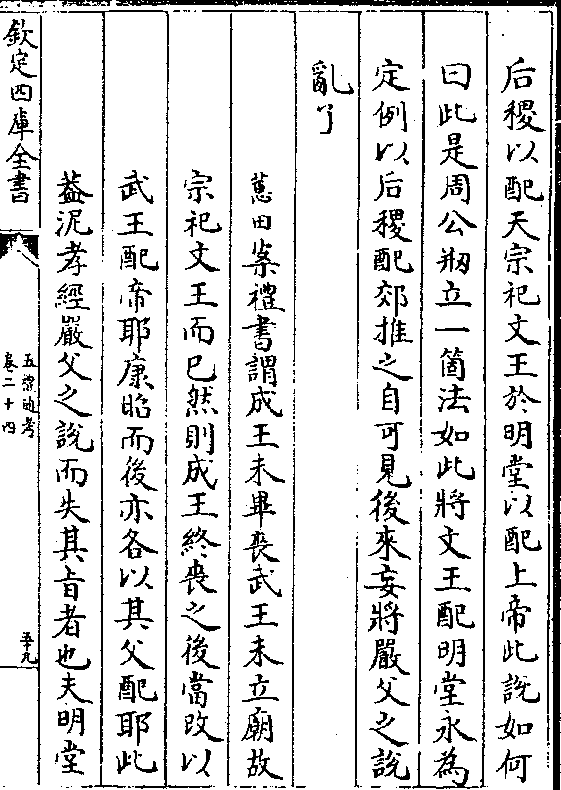 后稷以配天宗祀文王於明堂以配上帝此說如何
曰此是周公剏立一箇法如此將文王配明堂永為
定例以后稷配郊推之自可見後來妄將嚴父之說
亂了
蕙田案禮書謂成王未畢喪武王未立廟故
宗祀文王而已然則成王終喪之後當改以
武王配帝耶康昭而後亦各以其父配耶此
葢泥孝經嚴父之說而失其旨者也夫明堂
欽定四庫全書
五禮通考
卷二十四
五十九